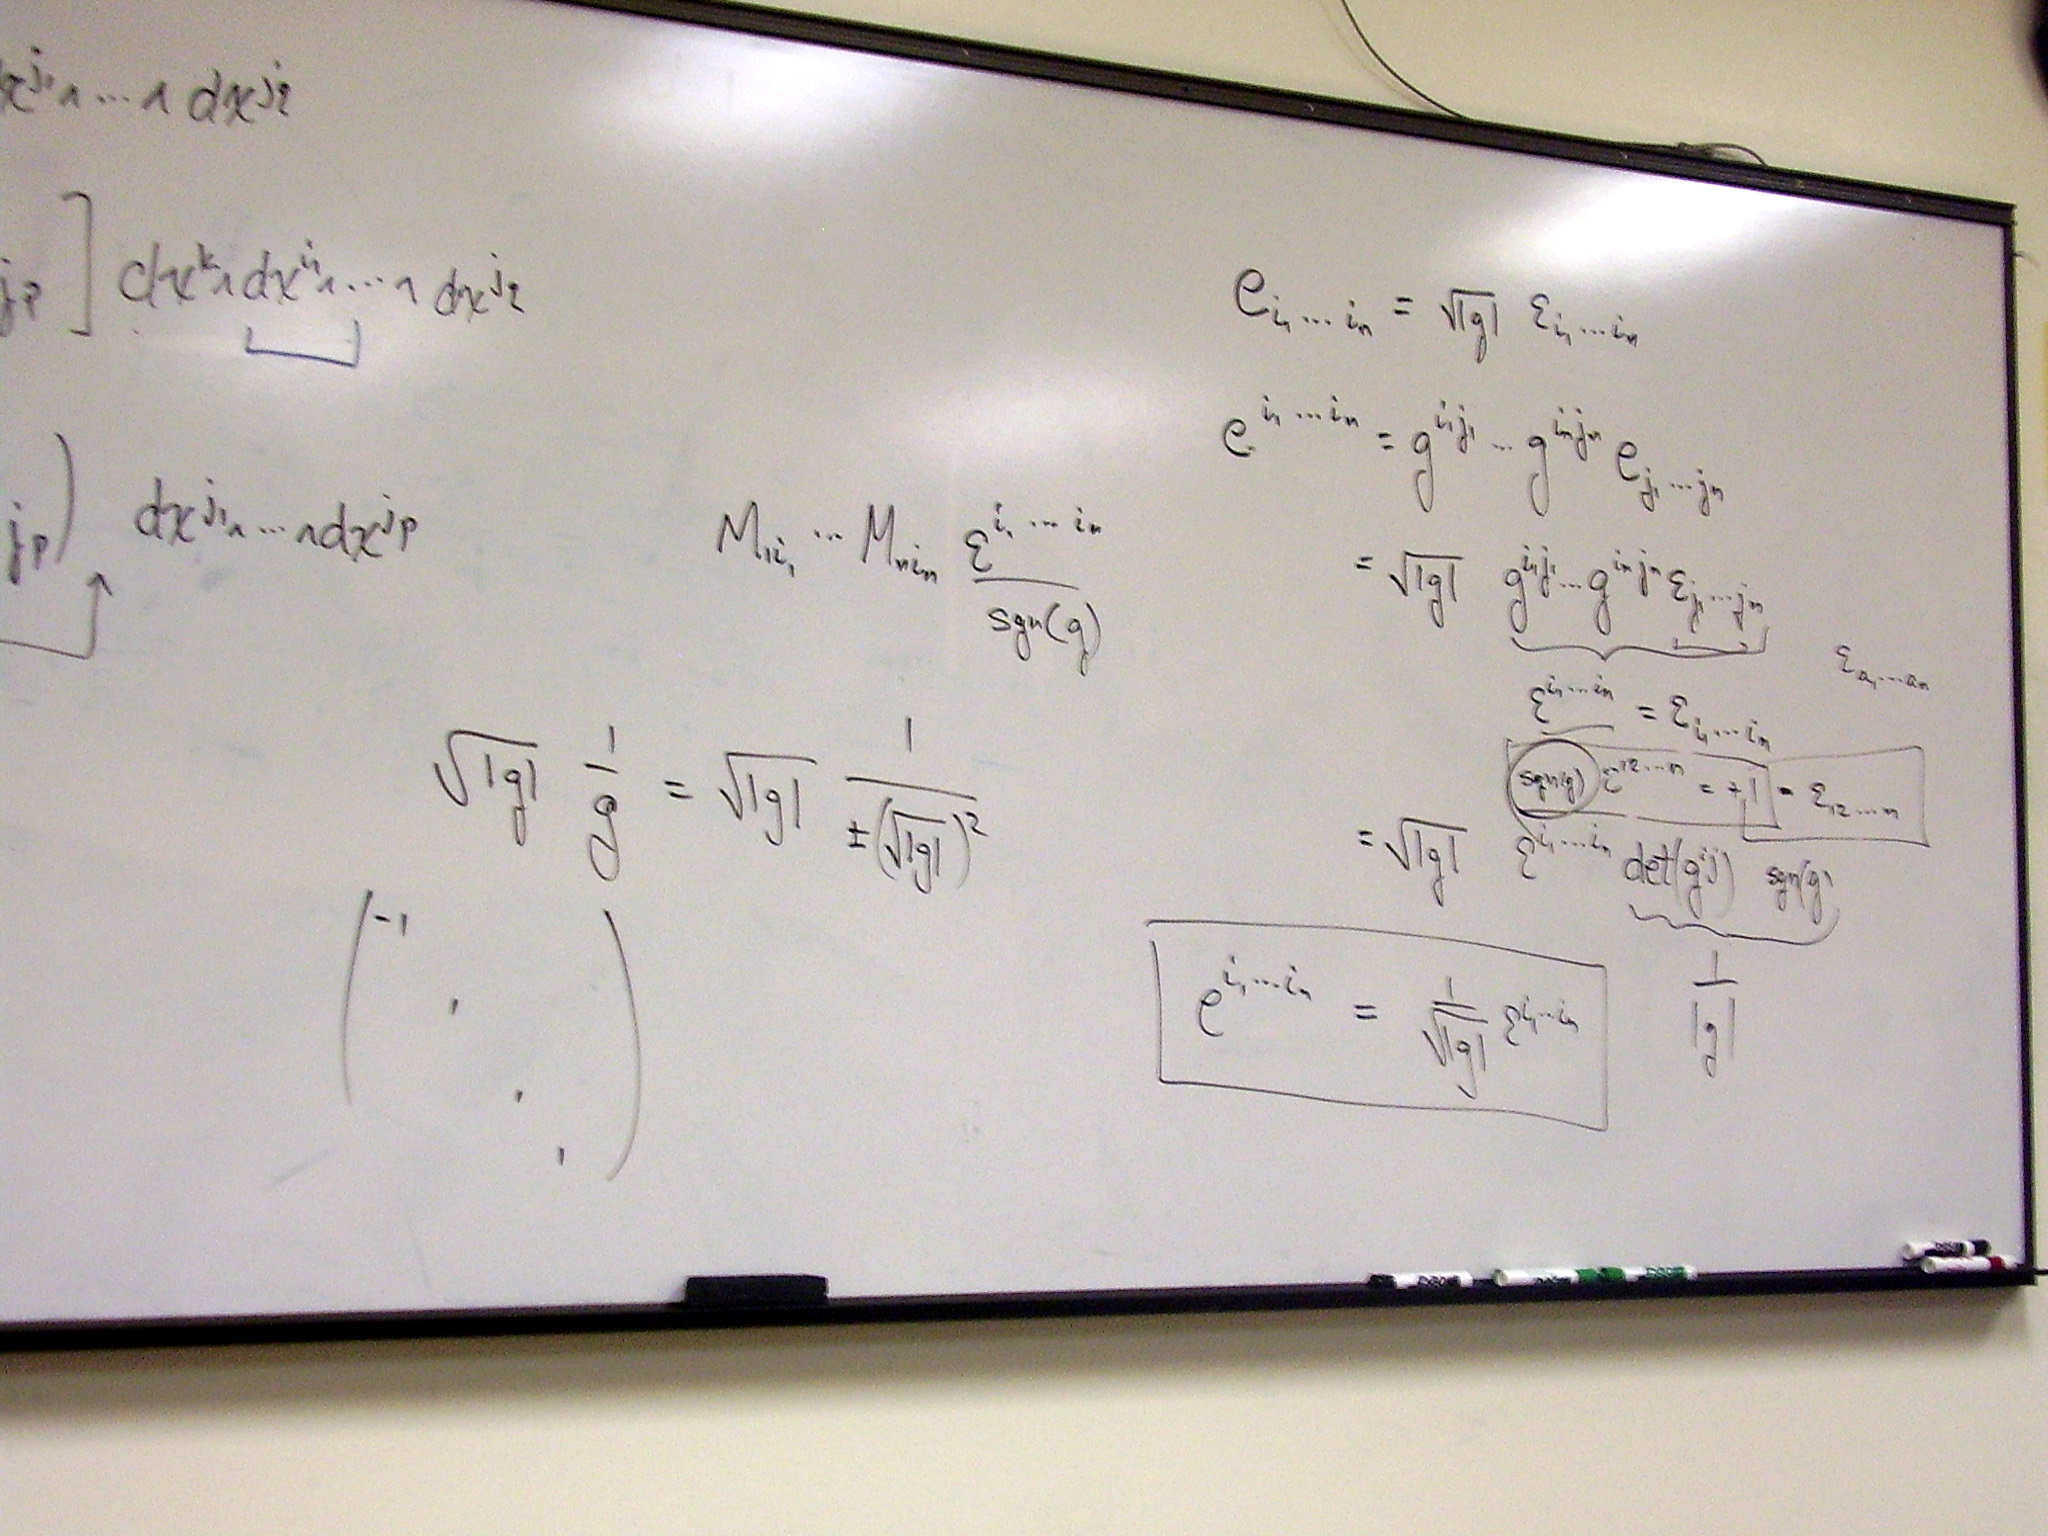 x^{j_1} ∧ ... ∧ dx^{j_q}
j_p ] dx^k ∧ dx^{i_1} ∧ ... ∧ dx^{j_q}
j_p ) dx^{j_1} ∧ ... ∧ dx^{j_p}
M_{1i_1} ... M_{ni_n} ε^{i_1 ... i_n}
sgn(g)
√|g| 1/g = √|g| 1/(±(√|g|)^2)
( -1
1
1
1 )
e_{i_1 ... i_n} = √|g| ε_{i_1 ... i_n}
e^{i_1 ... i_n} = g^{i_1 j_1} ... g^{i_n j_n} e_{j_1 ... j_n}
= √|g| g^{i_1 j_1} ... g^{i_n j_n} ε_{j_1 ... j_n}
ε_{a_1 ... a_n}
ε^{i_1 ... i_n} = ε_{i_1 ... i_n}
sgn(g) ε^{12 ... n} = +1 = ε_{12 ... n}
= √|g| ε^{i_1 ... i_n} det(g^{ij}) sgn(g)
1/|g|
e^{i_1 ... i_n} = 1/√|g| ε^{i_1 ... i_n}